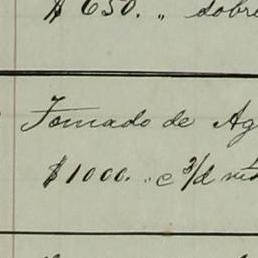 $ 650. „ dobre
Tomado de Ag
$1000. „ c 3/d vis